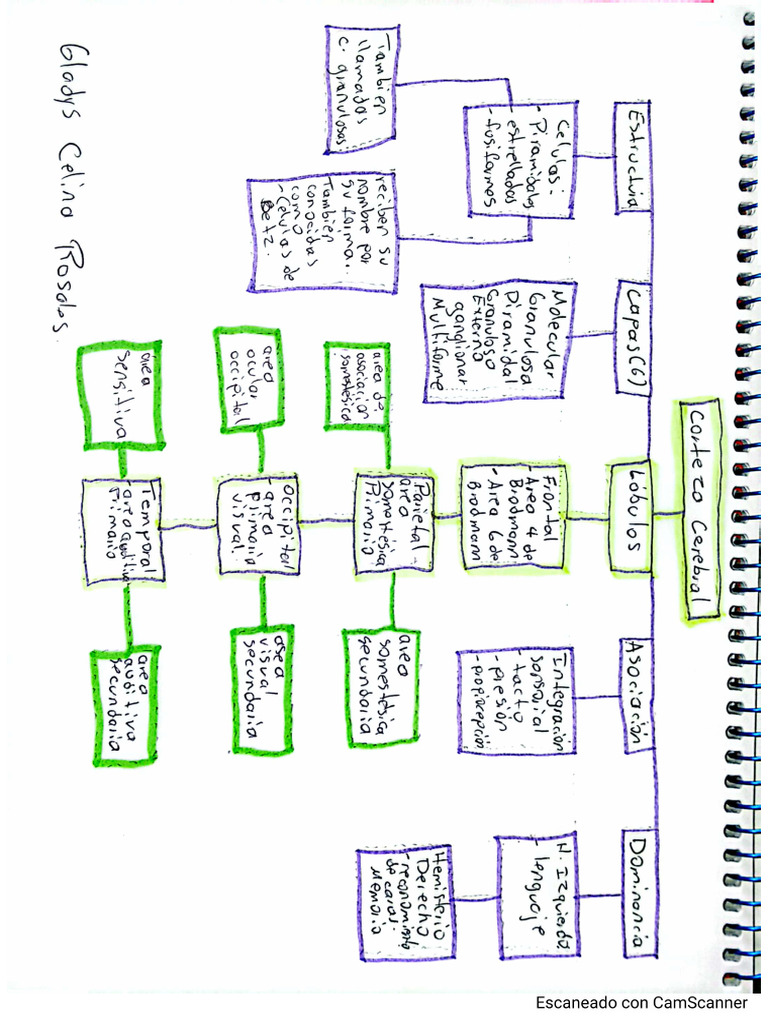 Corteza Cerebral
Estructura
Celulas:
- Piramidales
- estrellados
- fusiformes
También
llamados
c. granulosos.
reciben su
nombre por
su forma.
También
conocidas
como
- Celulas de
Betz.
Capas (6)
Molecular
Granulosa
Piramidal
Granuloso
Externo
ganglionar
Multiforme
Lóbulos
Frontal
- Area 4 de
Brodmann
- Area 6 de
Brodmann
Parietal -
area
somestésica
Primario
area de
asociacion
somestesica
area
somestesica
secundaria
Occipital
- area
primaria
visual.
area
ocular
occipital
area
visual
secundaria
Temporal
- area auditiva
Primario
area
sensitiva
area
auditiva
secundaria
Asociación
Integración
sensorial
- tacto
- presion
- propiocepción
Dominancia
H. Izquierdo
- lenguaje
Hemisferio
Derecho
de caras.
Memoria
Gladys Celina Rosales.
Escaneado con CamScanner